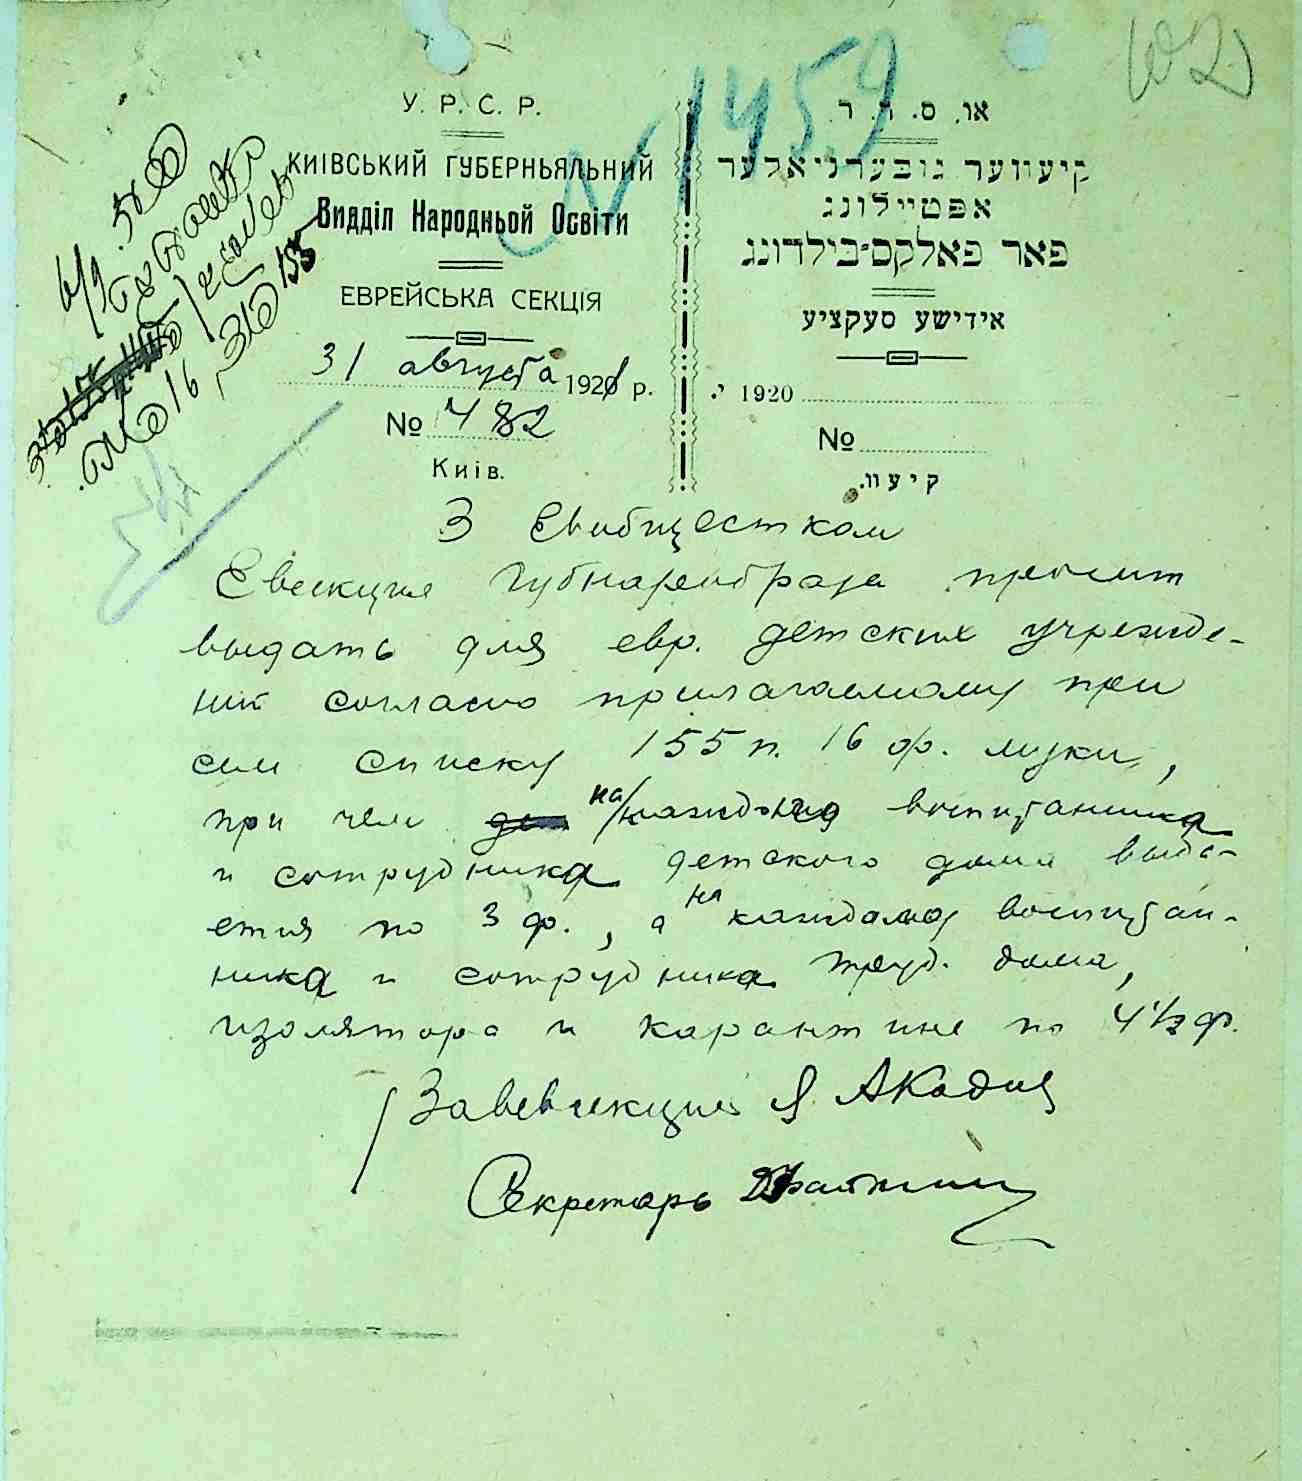 У. Р. С. Р.
КИІВСЬКИЙ ГУБЕРНЬЯЛЬНИЙ
Видділ Народньой Освіти
ЕВРЕЙСЬКА СЕКЦІЯ
31 августа 1921 р.
№ 482
Київ.
N 1459
או. ס. ר. ר.
קיעווער גובערניאלער
אפטיילונג
פאר פאלקס-בילדונג
אידישע סעקציע
1920 י.
№
קיעוו.
В Евобщестком
Евсекция Губнаробраза просит
выдать для евр. детских учрежде-
ний согласно прилагаемому при
сем списку 155 п. 16 ф. муки,
при чем на каждого воспитанника
и сотрудника детского дома выда-
ется по 3 ф., а на каждого воспитан-
ника и сотрудника труд. дома,
изолятора и карантине по 4 1/2 ф.
Завевсекцией
Секретарь